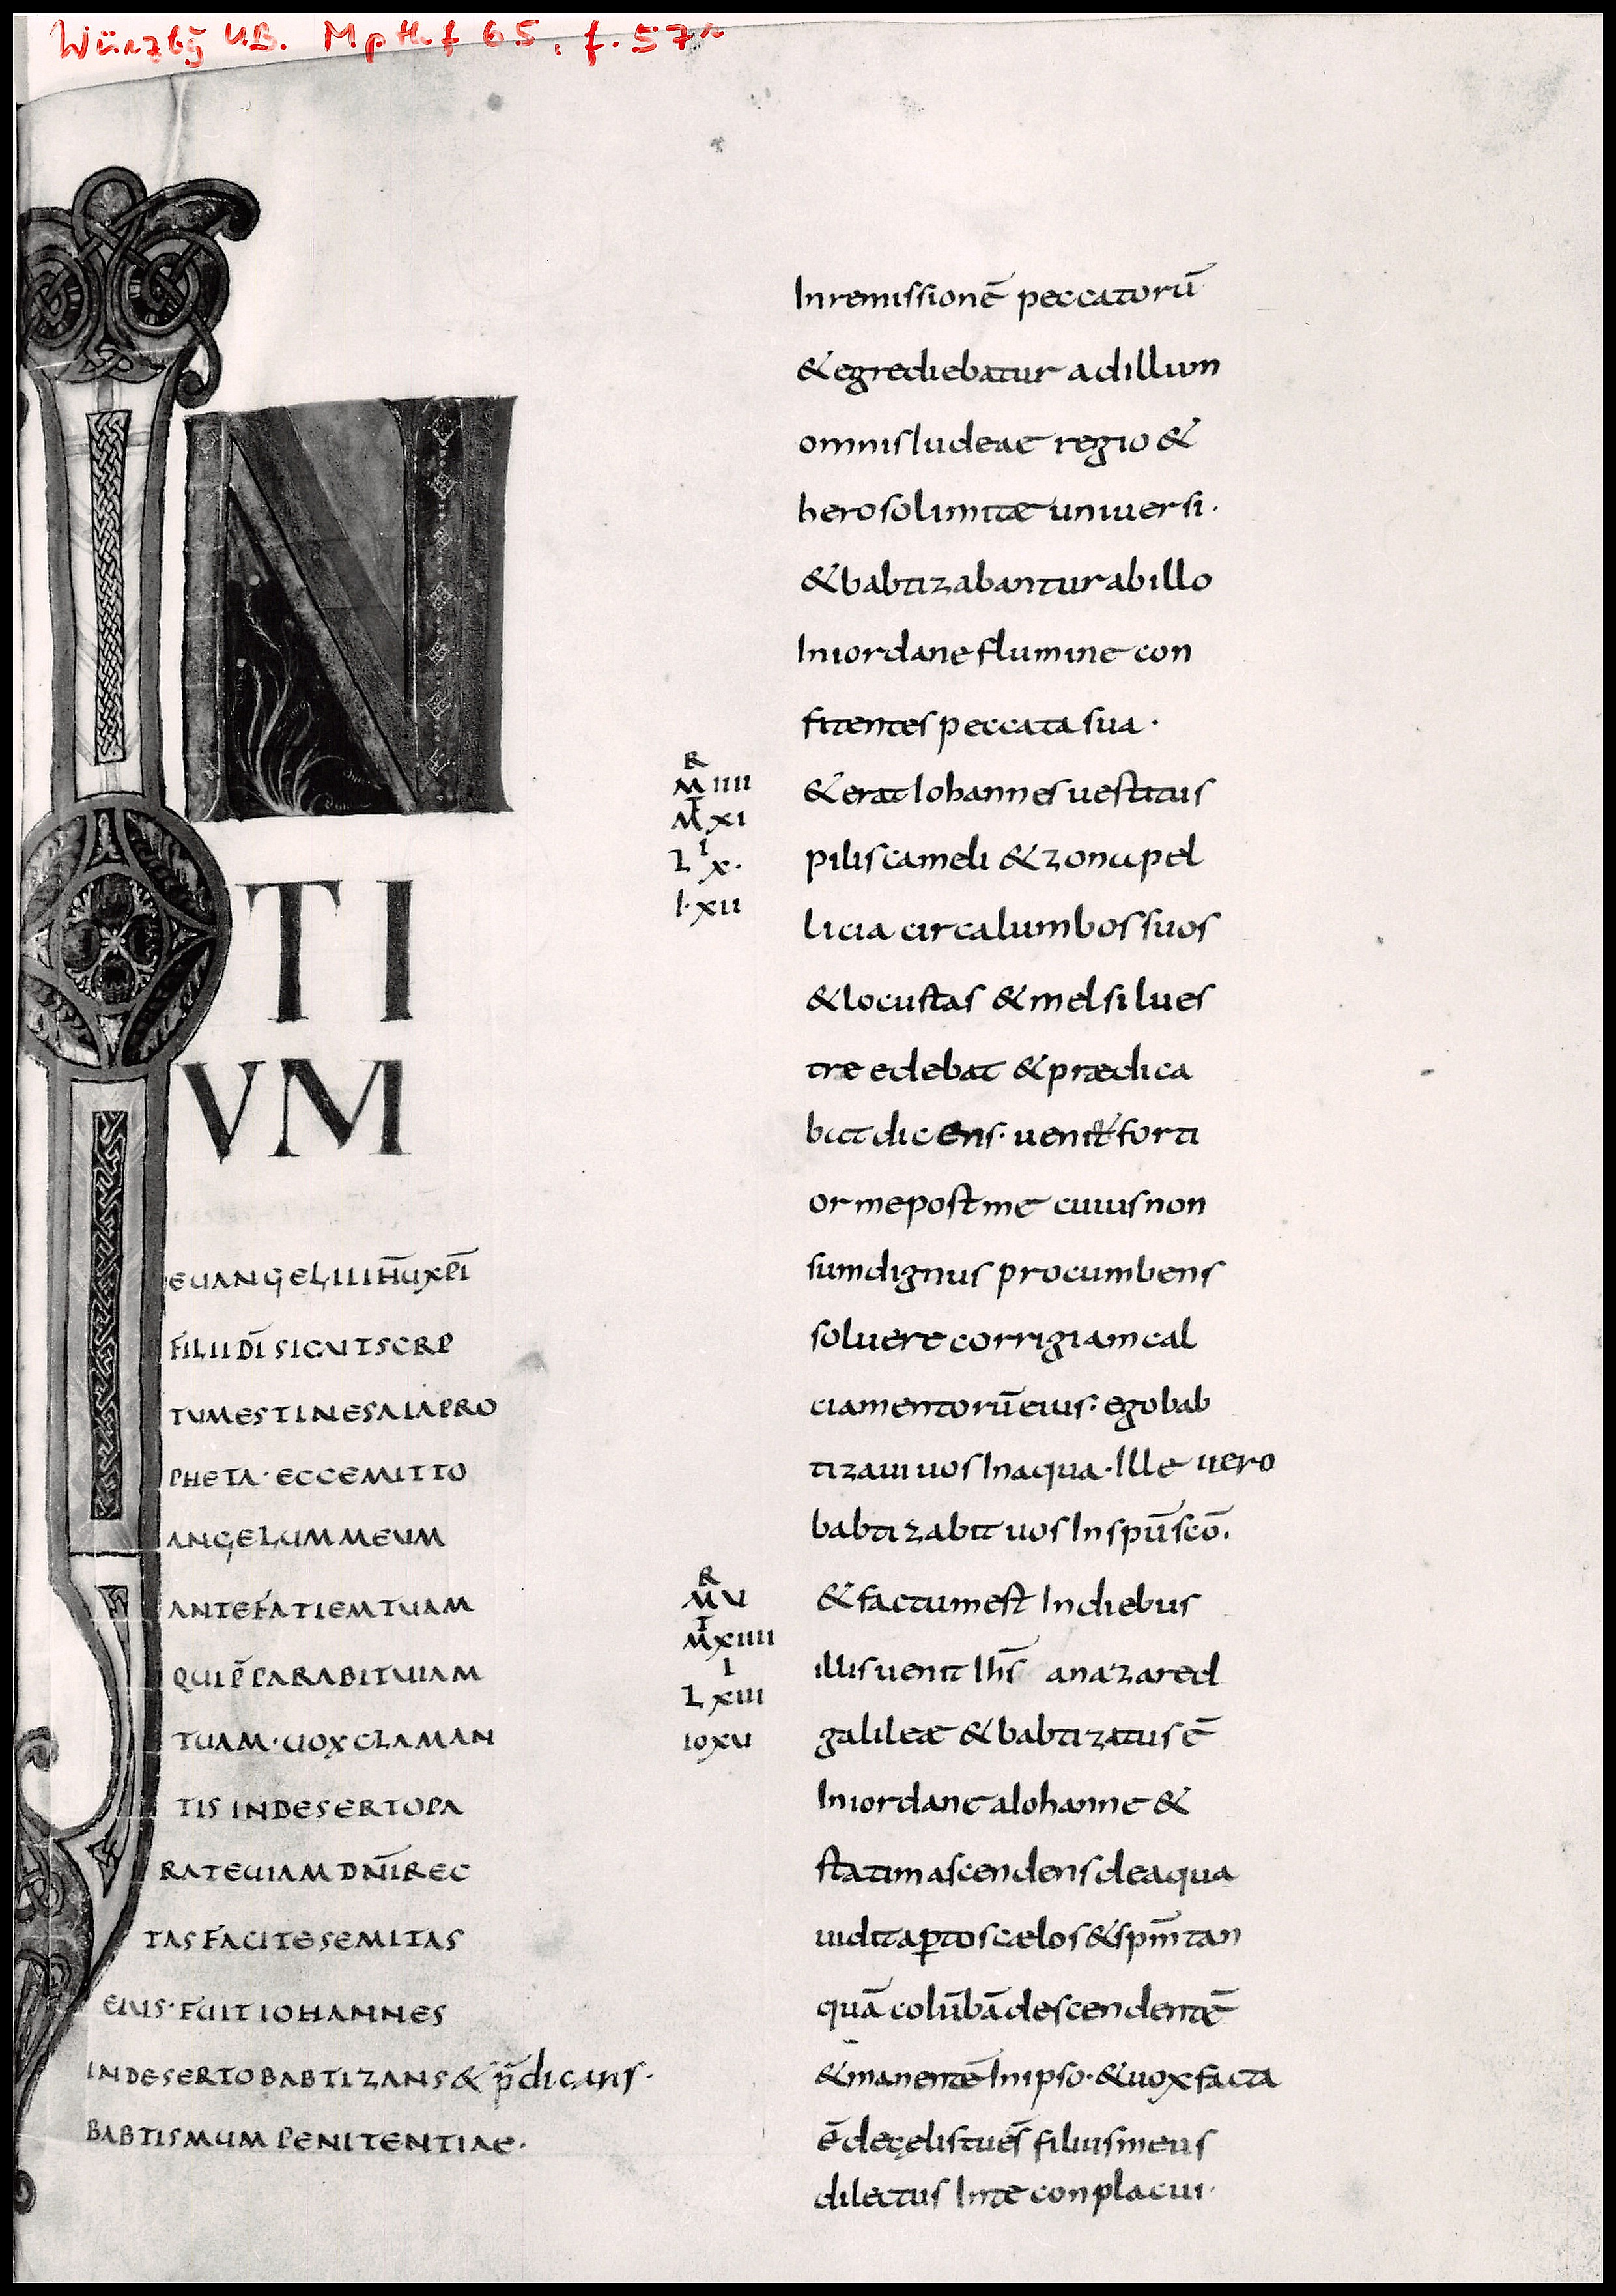 Würzbg UB. M p th f 65, f. 57r
IN
TI
VM
EUANGELII IHU XPI
FILII DI SICUT SCRP
TUM EST IN ESAIA PRO
PHETA · ECCE MITTO
ANGELUM MEUM
ANTE FATIEM TUAM
QUI P̄PARABIT UIAM
TUAM · UOX CLAMAN
TIS IN DESERTO PA
RATE UIAM DNI REC
TAS FACITE SEMITAS
EIUS · FUIT IOHANNES
IN DESERTO BABTIZANS & p̄dicans ·
BABTISMUM PENITENTIAE ·
In remissionē peccatorū
& egrediebatur ad illum
omnis Iudeae regio &
hierosolimitae uniuersi ·
& babtizabantur ab illo
In iordane flumine con
fitentes peccata sua ·
R
M IIII
T
M XI
I
L X ·
I · XII
& erat Iohannes uestitus
pilis cameli & zona pel
licia circa lumbos suos
& locustas & mel silues
træ edebat & prædica
bat dicens · uenit forti
or me post me cuius non
sum dignus procumbens
soluere corrigiam cal
ciamentorū eius : ego bab
tizaui uos In aqua · Ille uero
babtizabit uos In spū scō .
R
M U
T
M XIIII
I
L XIII
IO XU
& factum est In diebus
illis uenit Ihs̄ a nazared
galileæ & babtizatus ē
In iordane a Iohanne &
statim ascendens de aqua
uidit aꝑtos cælos & spm̄ tan
quā colūbā descendentē
& manentē In ipso · & uox facta
ē de cęlis tu es̄ filius meus
dilectus In te conplacui ·